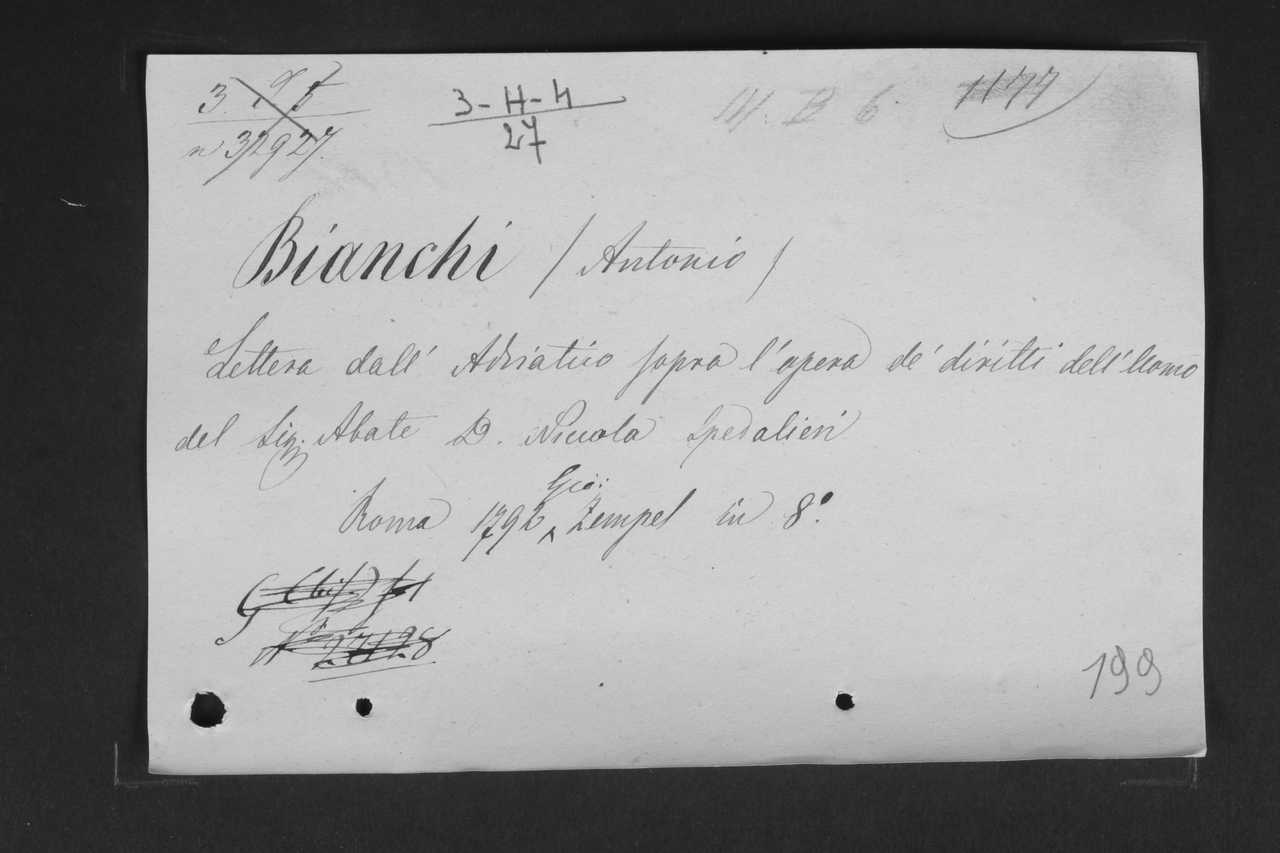 3-H-4
27
1177
Bianchi (Antonio)
Lettera dall' Adriatico sopra l'opera de' diritti dell'Uomo
del Sig. Abate D. Niccola Spedalieri
Roma 1792 Gio: Zempel in 8.°
199